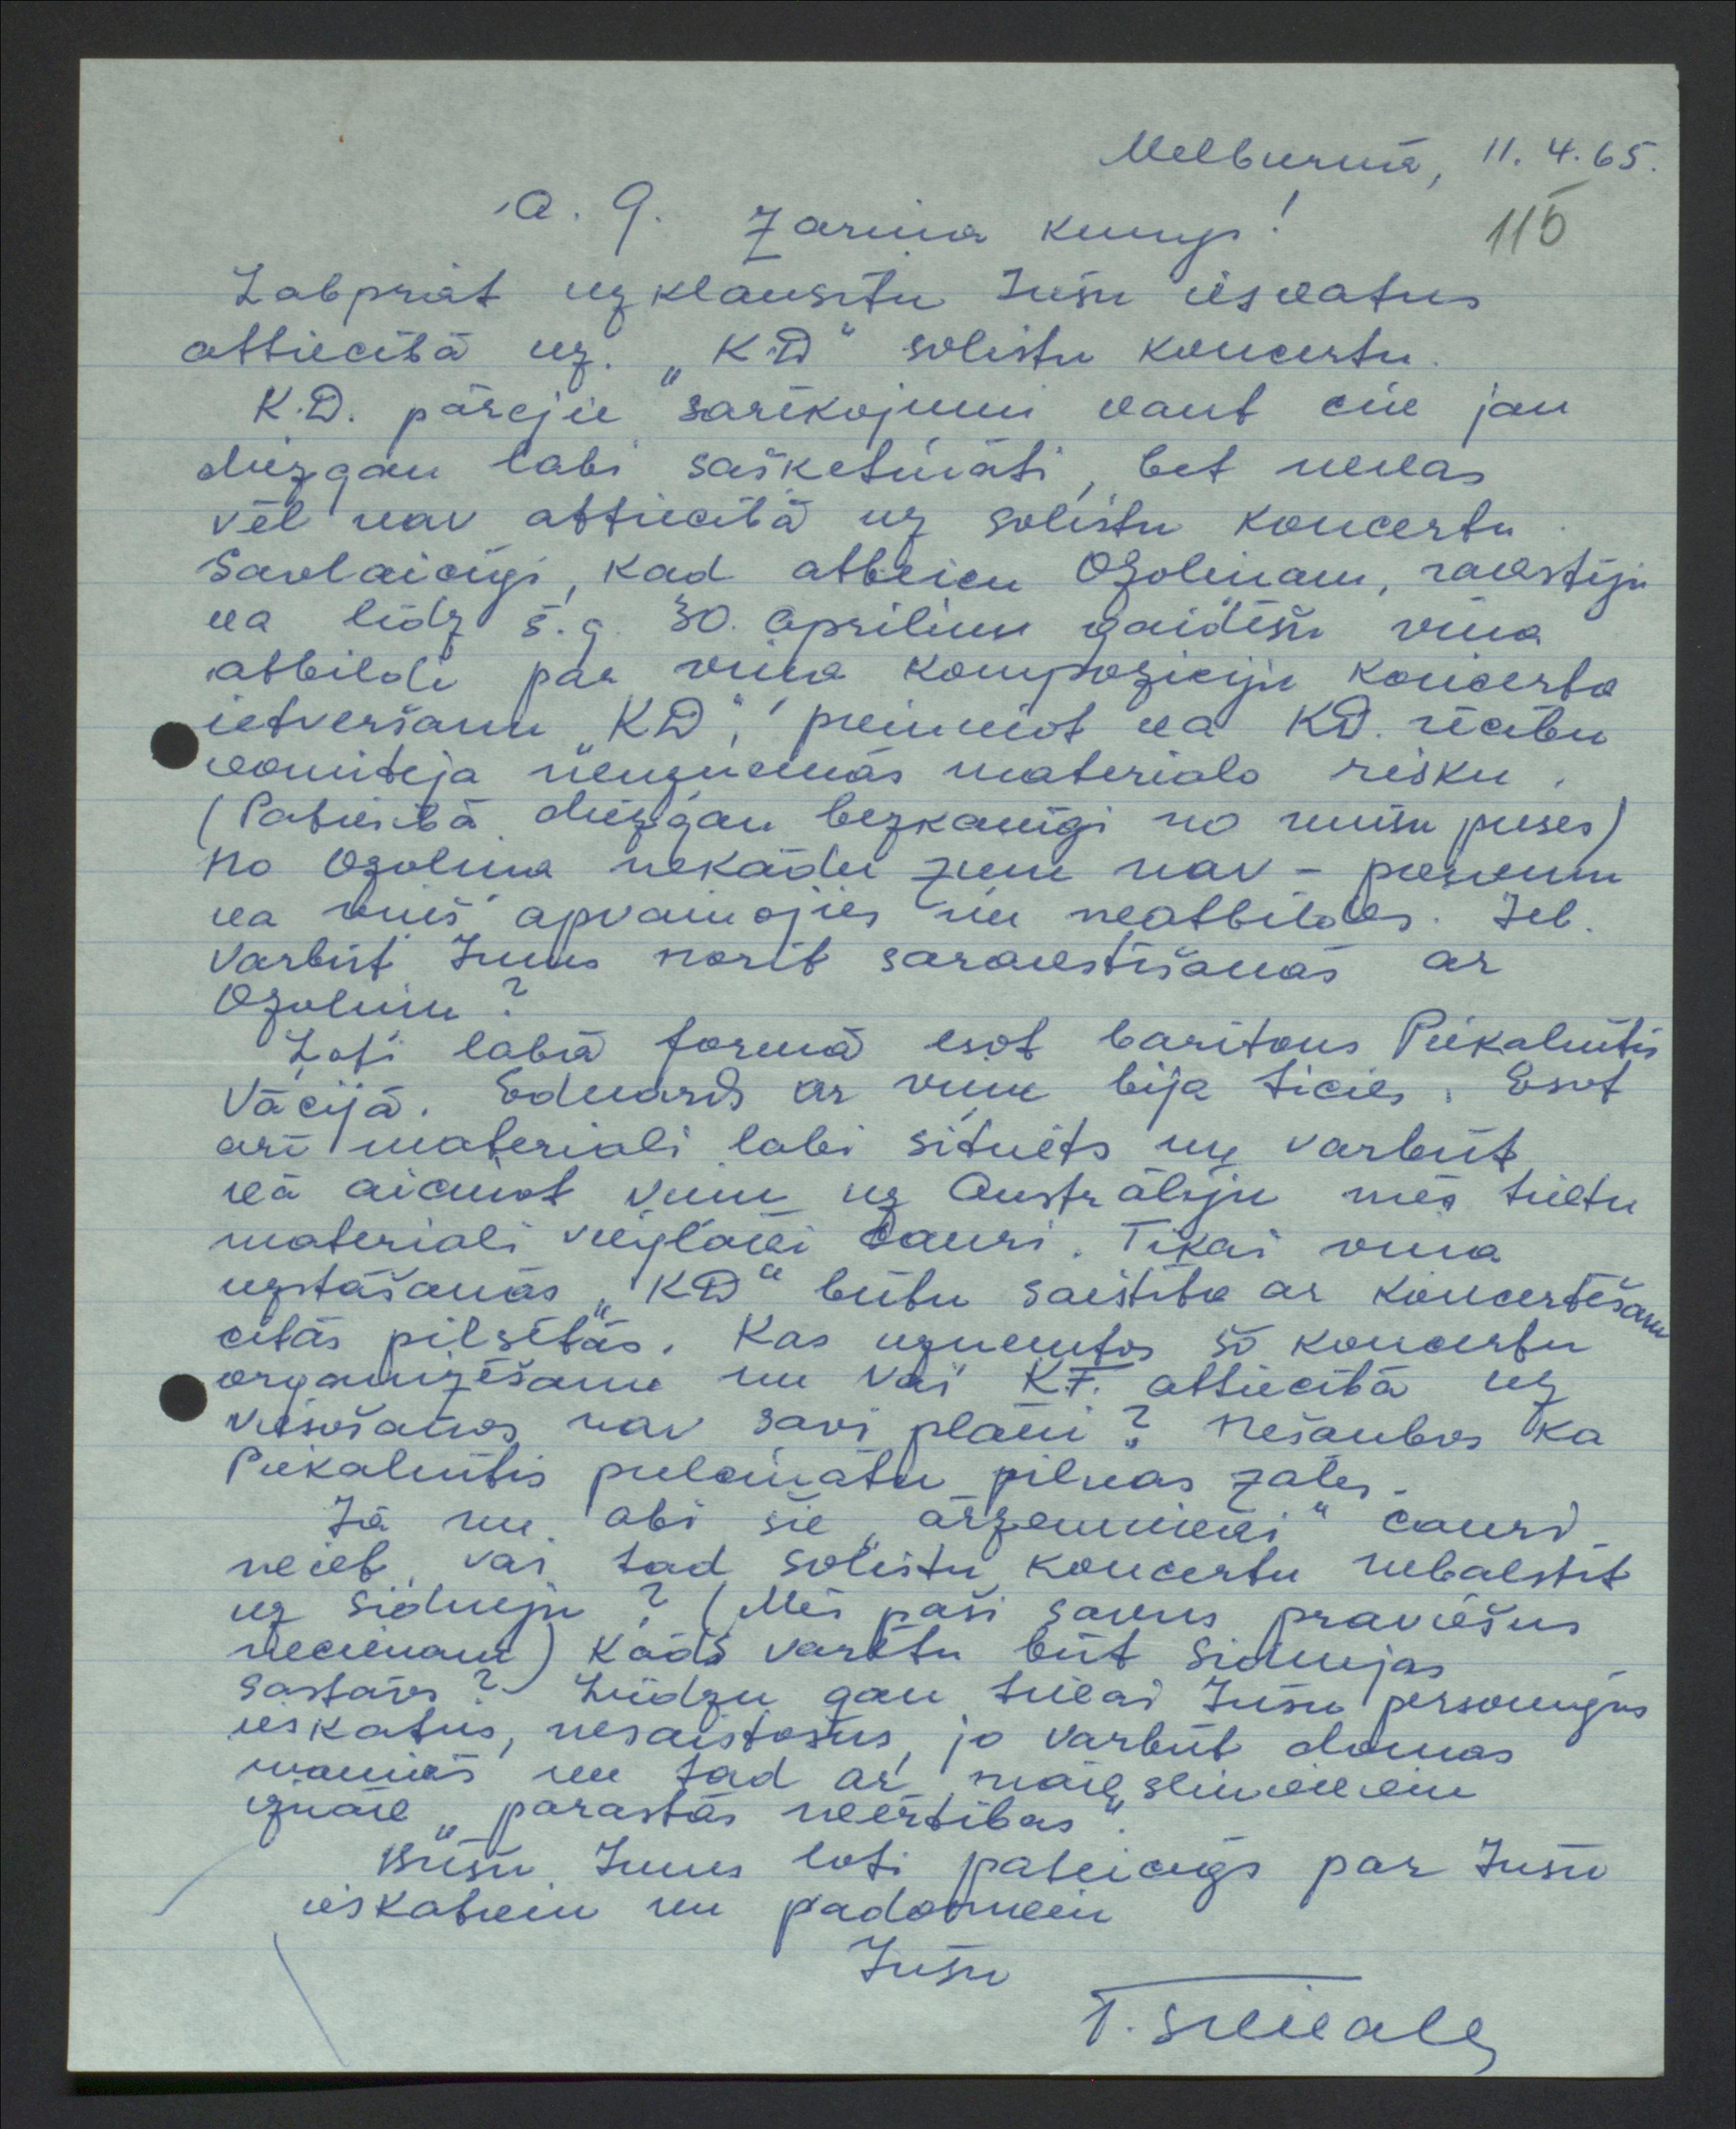 Melburnā, 11. 4. 65.
115
A. g. Zariņa kungs!
Labprāt uzklausītu Jūsu ieskatus
attiecībā uz „KD" solistu koncertu.
K.D. pārējie sarīkojumi kaut cik jau
diezgan labi sašketināti, bet nekas
vēl nav attiecībā uz solistu koncertu.
Savlaicīgi, kad atteicu Ozoliņam, rakstīju
ka līdz š.g. 30. aprilim gaidīšu viņa
atbildi par viņa kompoziciju koncerta
ietveršanu „KD", pieņemot ka KD. rīcības
komiteja neuzņemās materialo risku.
(Patiesībā diezgan bezkaunīgi no mūsu puses)
No Ozoliņa nekādu ziņu nav - pieņemu
ka viņš apvainojies un neatbildēs. Jeb.
varbūt Jums norit sarakstīšanās ar
Ozoliņu?
Ļoti labā formā esot baritons Piekalnītis
Vācijā. Eduards ar viņu bija ticies. Esot
arī materiali labi situēts un varbūt
kā aicinot viņu uz Austrāliju mēs tiktu
materiali vieglāki cauri. Tikai viņa
uzstāšanās „KD" būtu saistīta ar koncertēšanu
citās pilsētās. Kas uzņemtos šo koncertu
organizēšanu un vai K.F. attiecībā uz
viesošanos nav savi plāni? Nešaubos ka
Piekalnītis pulcinātu pilnas zāles.
Jā un abi šie „ārzemnieki" cauri
neiet, vai tad solistu koncertu nebalstīt
uz Sidneju? (Mēs paši savus praviešus
necienam) Kāds varētu būt Sidnejas
sastāvs? Lūdzu gan tikai Jūsu personīgus
ieskatus, nesaistošus, jo varbūt domas
mainās un tad ar maiņ slinkiem
iznāk „parastās neērtības".
Būšu Jums ļoti pateicīgs par Jūsu
ieskatiem un padomiem
Jūsu